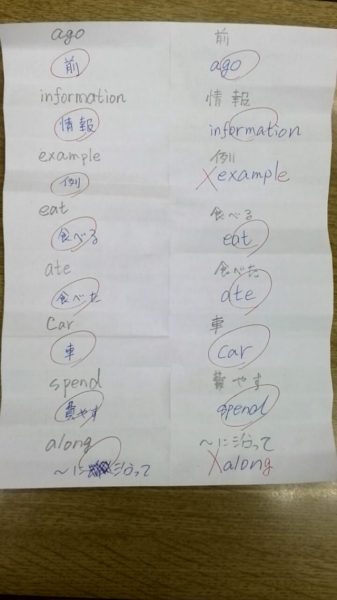 ago
前
information
情報
example
例
eat
食べる
ate
食べた
car
車
spend
費やす
along
〜に沿って
前
ago
情報
information
例
example
食べる
eat
食べた
ate
車
car
費やす
spend
〜に沿って
along